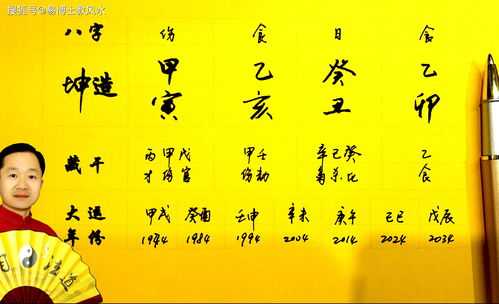 搜狐号@易博士教风水
八字 伤 食 日 食
坤造 甲寅 乙亥 癸丑 乙卯
藏干 丙甲戊 甲壬 辛己癸 乙
才伤官 伤劫 枭杀比 食
大运 甲戌 癸酉 壬申 辛未 庚午 己巳 戊辰
年份 1974 1984 1994 2004 2014 2024 2034